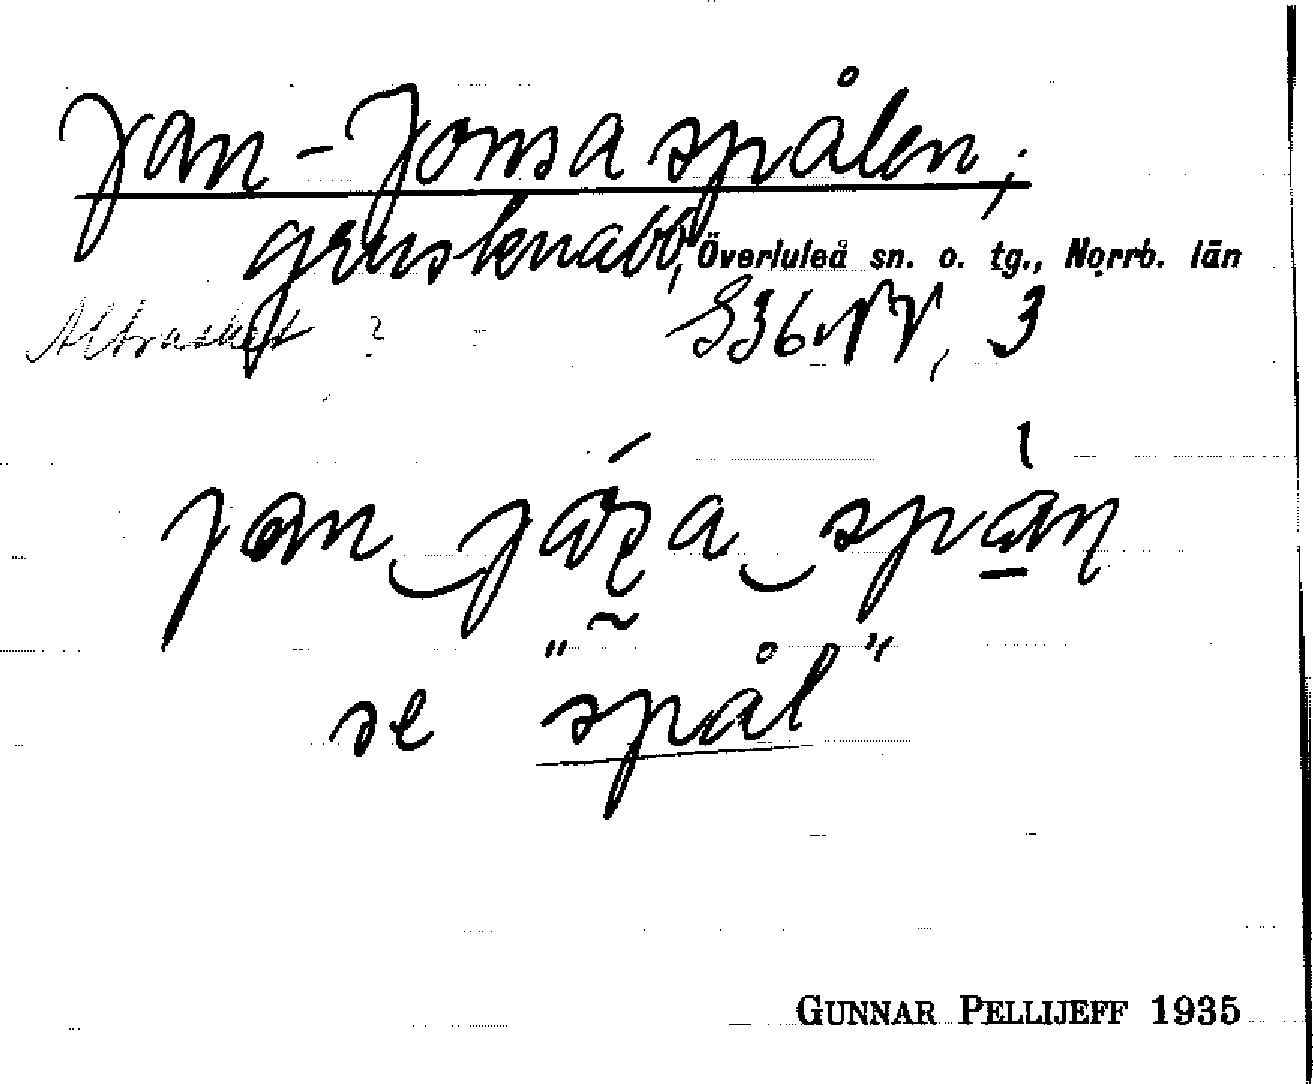 Jan-Jonsaspålen,
grusknabb, Överluleå sn. o. tg., Norrb. län
Alträsket ? S36 NV, 3
se "spål"
GUNNAR PELLIJEFF 1935